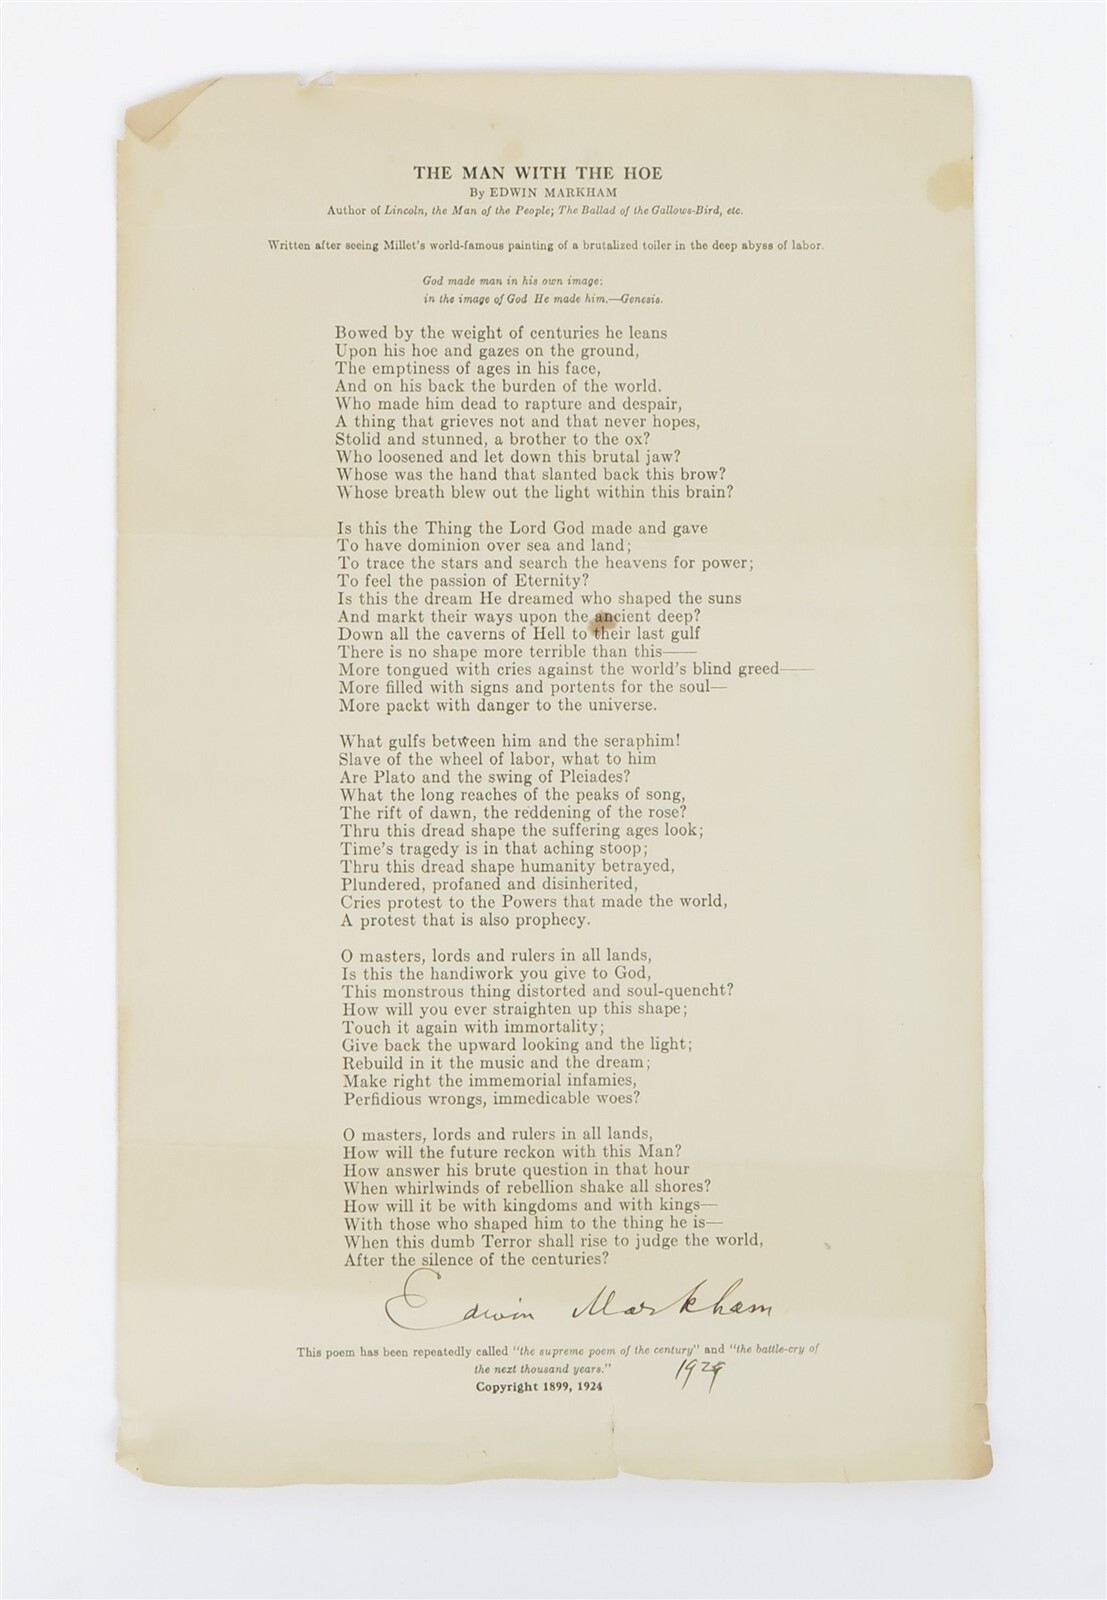 THE MAN WITH THE HOE
By EDWIN MARKHAM
Author of Lincoln, the Man of the People; The Ballad of the Gallows-Bird, etc.
Written after seeing Millet's world-famous painting of a brutalized toiler in the deep abyss of labor.
God made man in his own image:
in the image of God He made him.—Genesis.
Bowed by the weight of centuries he leans
Upon his hoe and gazes on the ground,
The emptiness of ages in his face,
And on his back the burden of the world.
Who made him dead to rapture and despair,
A thing that grieves not and that never hopes,
Stolid and stunned, a brother to the ox?
Who loosened and let down this brutal jaw?
Whose was the hand that slanted back this brow?
Whose breath blew out the light within this brain?
Is this the Thing the Lord God made and gave
To have dominion over sea and land;
To trace the stars and search the heavens for power;
To feel the passion of Eternity?
Is this the dream He dreamed who shaped the suns
And markt their ways upon the ancient deep?
Down all the caverns of Hell to their last gulf
There is no shape more terrible than this——
More tongued with cries against the world's blind greed——
More filled with signs and portents for the soul—
More packt with danger to the universe.
What gulfs between him and the seraphim!
Slave of the wheel of labor, what to him
Are Plato and the swing of Pleiades?
What the long reaches of the peaks of song,
The rift of dawn, the reddening of the rose?
Thru this dread shape the suffering ages look;
Time's tragedy is in that aching stoop;
Thru this dread shape humanity betrayed,
Plundered, profaned and disinherited,
Cries protest to the Powers that made the world,
A protest that is also prophecy.
O masters, lords and rulers in all lands,
Is this the handiwork you give to God,
This monstrous thing distorted and soul-quencht?
How will you ever straighten up this shape;
Touch it again with immortality;
Give back the upward looking and the light;
Rebuild in it the music and the dream;
Make right the immemorial infamies,
Perfidious wrongs, immedicable woes?
O masters, lords and rulers in all lands,
How will the future reckon with this Man?
How answer his brute question in that hour
When whirlwinds of rebellion shake all shores?
How will it be with kingdoms and with kings—
With those who shaped him to the thing he is—
When this dumb Terror shall rise to judge the world,
After the silence of the centuries?
Edwin Markham
This poem has been repeatedly called "the supreme poem of the century" and "the battle-cry of
the next thousand years."
1929
Copyright 1899, 1924